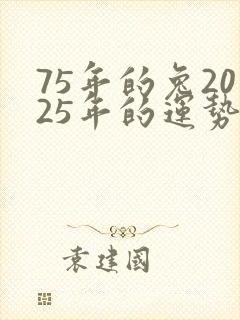 75年的兔20
25年的運勢
袁建國